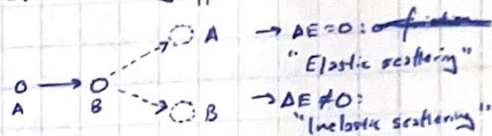 A → ΔE=0:
"Elastic scattering"
A B
B → ΔE≠0:
"Inelastic scattering"